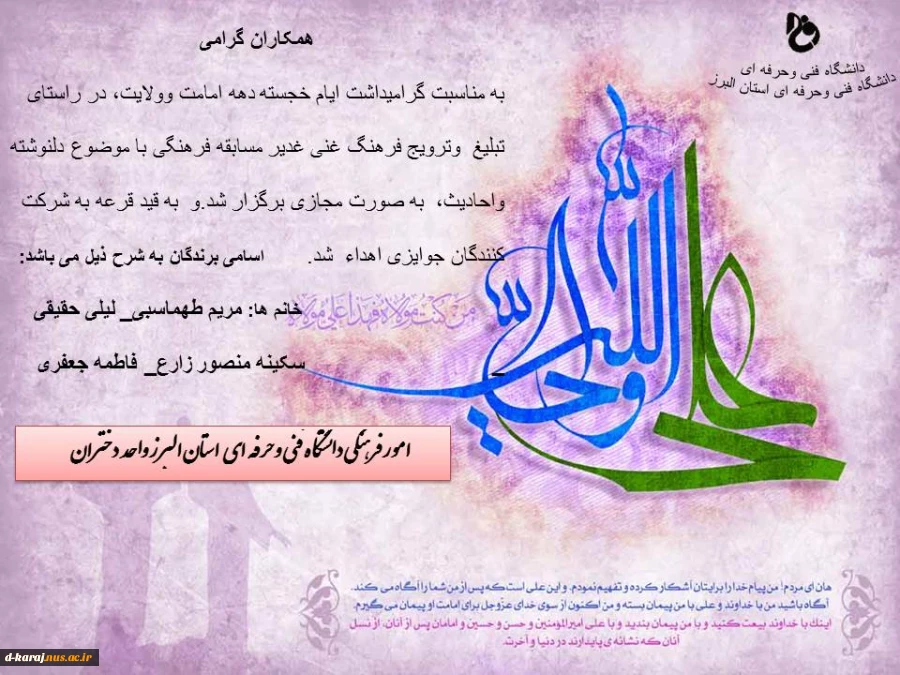 همکاران گرامی
دانشگاه فنی وحرفه ای
دانشگاه فنی وحرفه ای استان البرز
به مناسبت گرامیداشت ایام خجسته دهه امامت وولایت، در راستای
تبلیغ وترویج فرهنگ غنی غدیر مسابقه فرهنگی با موضوع دلنوشته
واحادیث، به صورت مجازی برگزار شد.و به قید قرعه به شرکت
کنندگان جوایزی اهداء شد. اسامی برندگان به شرح ذیل می باشد:
خانم ها: مریم طهماسبی_ لیلی حقیقی
_ سکینه منصور زارع_ فاطمه جعفری
من کنت مولاه فهذا علی مولاه
علی ولی الله
امور فرهنگی دانشگاه فنی و حرفه ای استان البرز واحد دختران
هان ای مردم! من پیام خدا را برایتان آشکار کرده و تفهیم نمودم. و این علی است که پس از من شما را آگاه می کند.
آگاه باشید من با خداوند و علی با من پیمان بسته و من اکنون از سوی خدای عزوجل برای امامت او پیمان می گیرم.
اینک با خداوند بیعت کنید و با من پیمان بندید و با علی امیرالمؤمنین و حسن و حسین و امامان پس از آنان، از نسل
آنان که نشانه ی پایدارند در دنیا و آخرت.
d-karaj.nus.ac.ir